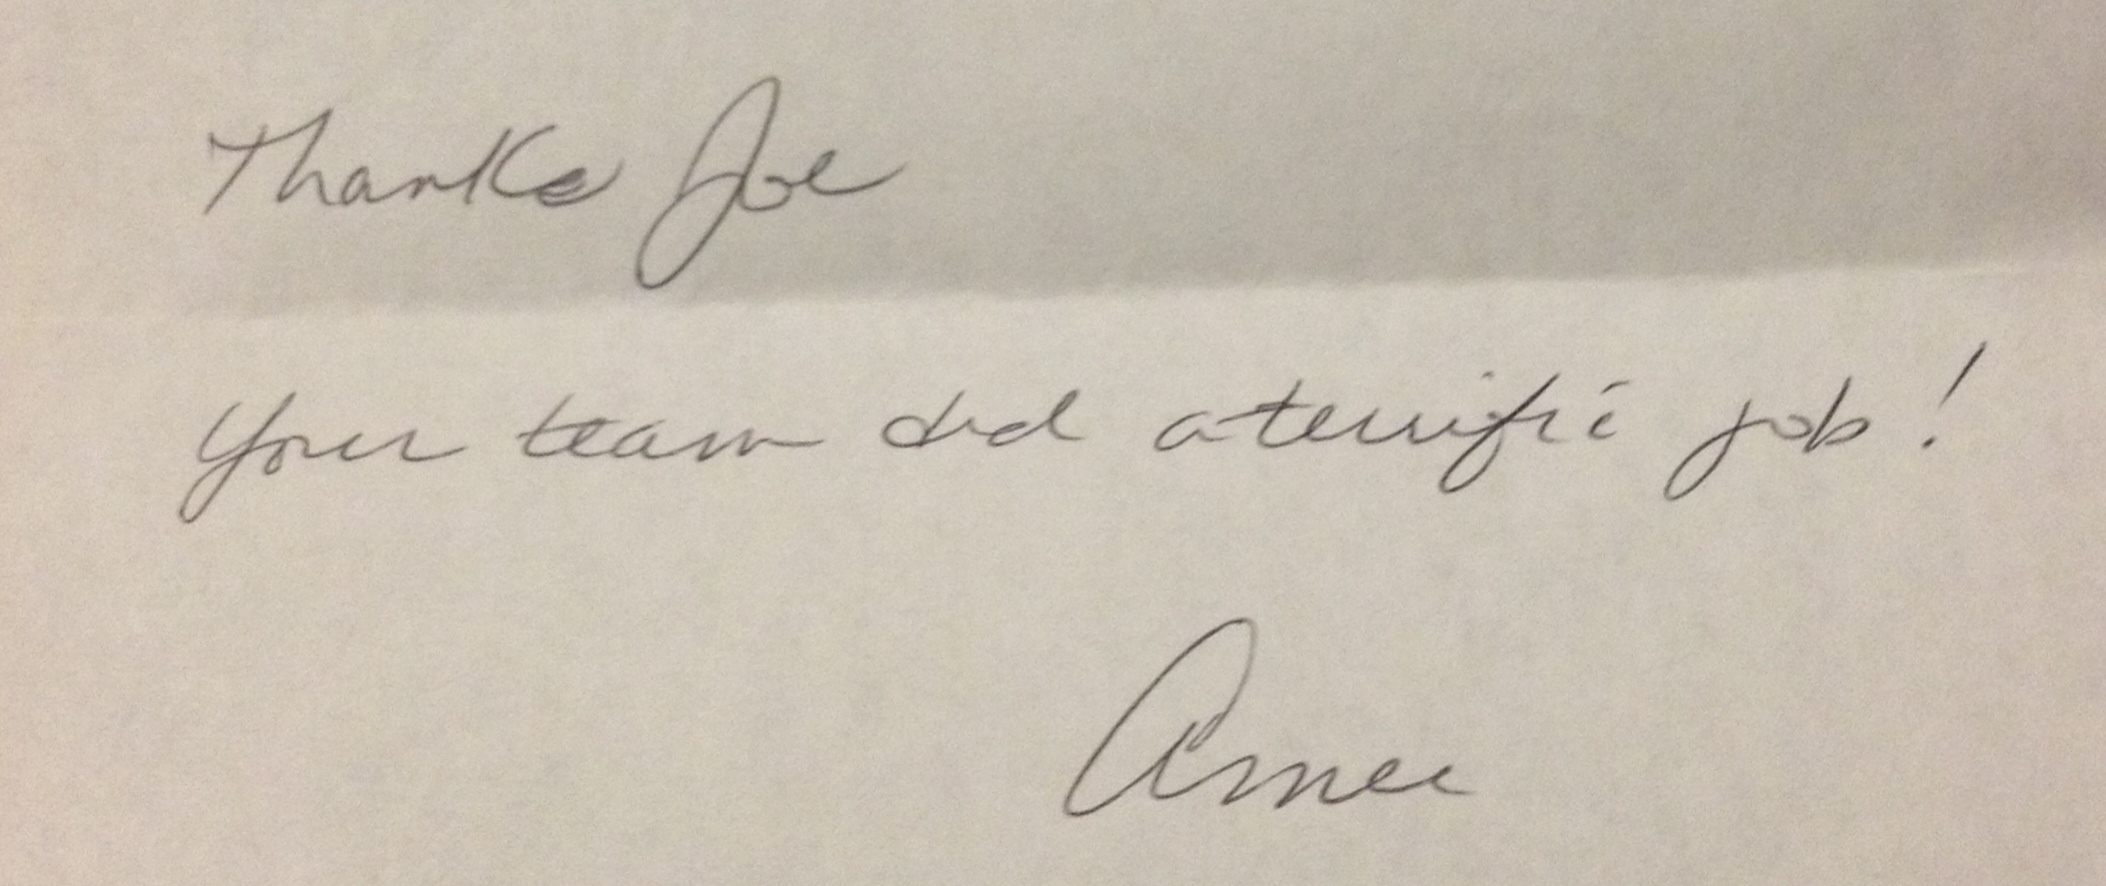 Thanks Joe
Your team did a terrific job!
Amee